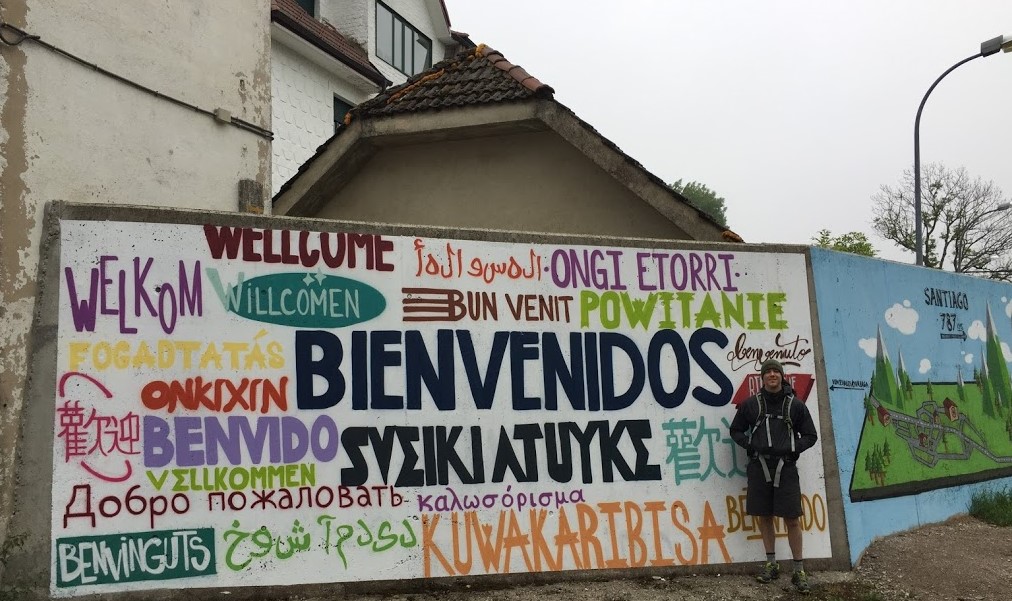 WELLCOME
WELKOM
WILLCOMEN
ONGI ETORRI
BUN VENIT
POWITANIE
FOGADTATÁS
BIENVENIDOS
benvenuto
ONKIXIN
歡迎
BENVIDO
SVEIKI ATUYKE
歡迎
VELLKOMMEN
Добро пожаловать
καλωσόρισμα
KUWAKARIBISA
BENVINGUTS
SANTIAGO
787